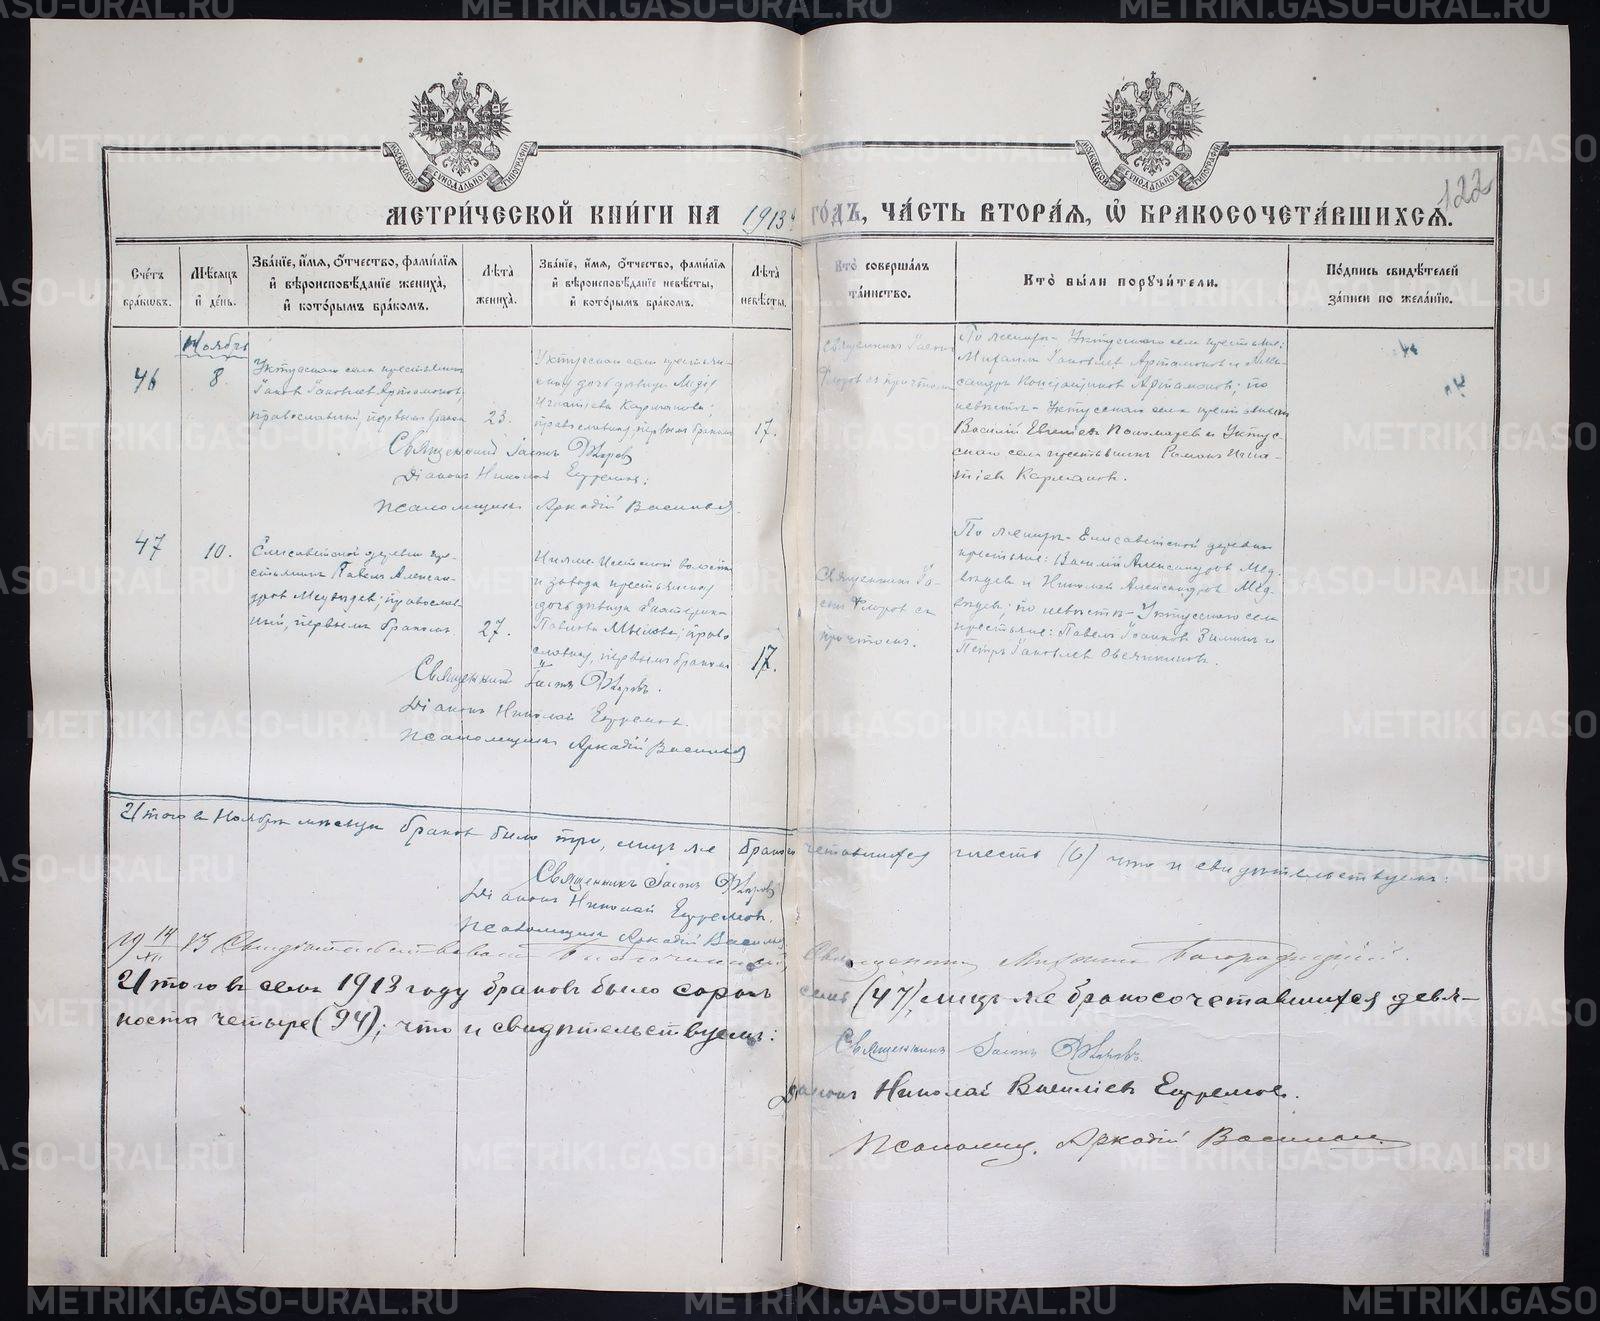 МОСКОВСКОЙ СѴНОДАЛЬНОЙ ТИПОГРАФІИ
МОСКОВСКОЙ СѴНОДАЛЬНОЙ ТИПОГРАФІИ
122
МЕТРИ́ЧЕСКОЙ КНИ́ГИ НА 1913й ГО́ДЪ, ЧА́СТЬ ВТОРА́Я, Ѡ҆ БРАКОСОЧЕТА́ВШИХСѦ.
Сче́тъ бра́ковъ.
Мѣ́сяцъ и҆ де́нь.
Зва́нїе, и҆́мя, ѻ҆́тчество, фами́лїя и҆ вѣроисповѣ́данїе жениха̀, и҆ кото́рымъ бра́комъ.
Лѣ́та жениха̀.
Зва́нїе, и҆́мя, ѻ҆́тчество, фами́лїя и҆ вѣроисповѣ́данїе невѣ́сты, и҆ кото́рымъ бра́комъ.
Лѣ́та невѣ́сты.
Кто̀ соверша́лъ та́инство.
Кто̀ бы́ли поручи́тели.
По́дпись свидѣ́телей за́писи по жела́нїю.
Ноябрь
46
8.
Уктусскаго села крестьянинъ
Іаковъ Іаковлевъ Артамоновъ,
православный, первымъ бракомъ
23.
Уктусскаго села крестьян-
ская дочь дѣвица
Игнатіева Карманова;
православная, первымъ бракомъ
17.
Священникъ Іасонъ
Флоровъ съ причтомъ
По женихѣ - Уктусскаго села крестьяне:
Михаилъ Іаковлевъ Артамоновъ и Алек-
сандръ Константиновъ Артамоновъ; по
невѣстѣ - Уктусскаго села крестьянинъ
Василій Пономаревъ и Уктус-
скаго села крестьянинъ Романъ Игна-
тіевъ Кармановъ.
Священникъ Іасонъ Флоровъ
Діаконъ Николай Ефремовъ:
Псаломщикъ Аркадій Васильевъ
47
10.
Елисаветской деревни кре-
стьянинъ Павелъ Алексан-
дровъ Медвѣдевъ; православ-
ный, первымъ бракомъ
27.
Нижне-Исетской волости
и завода крестьянская
дочь дѣвица Екатерина
Павлова Мылова; право-
славная, первымъ бракомъ
17.
Священникъ Іа-
сонъ Флоровъ съ
причтомъ.
По женихѣ - Елисаветской деревни
крестьяне: Василій Александровъ Мед-
вѣдевъ и Николай Александровъ Мед-
вѣдевъ; по невѣстѣ - Уктусскаго села
крестьяне: Павелъ Зиминъ и
Петръ Іаковлевъ Овсянниковъ.
Священникъ Іасонъ Флоровъ.
Діаконъ Николай Ефремовъ.
Псаломщикъ Аркадій Васильевъ
Итого въ Ноябрѣ мѣсяцѣ браковъ было три, лицъ же бракосочетавшихся шесть (6) что и свидѣтельствуемъ:
Священникъ Іасонъ Флоровъ
Діаконъ Николай Ефремовъ.
Псаломщикъ Аркадій Васильевъ
19 14/XII 13 Свидѣтельствовалъ Благочинный, Священникъ Михаилъ
Итого въ семъ 1913 году браковъ было сорокъ семь (47), лицъ же бракосочетавшихся девя-
носта четыре (94); что и свидѣтельствуемъ:
Священникъ Іасонъ Флоровъ.
Діаконъ Николай Василіевъ Ефремовъ.
Псаломщ. Аркадій Васильевъ
METRIKI.GASO-URAL.RU